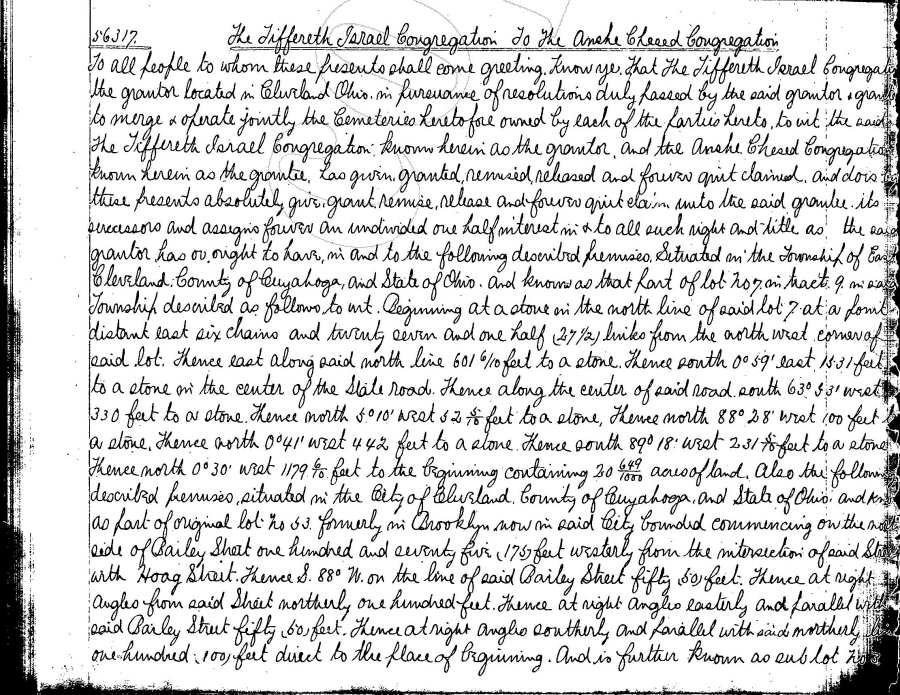 56317. The Tiffereth Israel Congregation To The Anshe Chesed Congregation
To all people to whom these presents shall come greeting. Know ye, That The Tiffereth Israel Congrega
the grantor located in Clveland Ohio. in pursuance of resolutions duly passed by the said grantor & gran
to merge & operate jointly the Cemeteries heretofore owned by each of the parties hereto, to wit the said
The Tiffereth Israel Congregation, known herein as the grantor, and the Anshe Chesed Congregatio
known herein as the grantee, has given, granted, remised, released and forever quit claimed, and does
these presents absolutely give, grant, remise, release and forever quit claim unto the said grantee. its
successors and assigns forever an undivided one half interest in & to all such right and title as the said
grantor has or ought to have, in and to the following described premises. Situated in the Township of Eas
Cleveland. County of Cuyahoga, and State of Ohio. And known as that part of lot no 7, in tract 9 in said
Township described as follows to wit. Beginning at a stone in the north line of said lot 7 at a point
distant east six chains and twenty seven and one half (27 1/2) links from the north west corner of
said lot. Thence east along said north line 601 6/10 feet to a stone. Thence south 0° 59' east 1531 feet
to a stone in the center of the State road. Thence along the center of said road south 63° 53' west
330 feet to a stone. Thence north 5° 10' west 52 feet to a stone, Thence north 88° 28' west 100 feet
a stone, Thence north 0° 41' west 442 feet to a stone Thence south 89° 18' west 231 feet to a stone
Thence north 0° 30' west 1179 feet to the beginning containing 20 649/1000 acres of land. Also the follow
described premises, situated in the City of Cleveland. County of Cuyahoga, and State of Ohio. and
as part of original lot no 53. formerly in Brooklyn now in said City bounded commencing on the
side of Bailey Street one hundred and seventy five (175) feet westerly from the intersection of said Str
with Hoag Street. Thence S. 88° W. on the line of said Bailey Street fifty (50) feet. Thence at right
Angles from said Street northerly one hundred feet. Thence at right angles easterly and parallel with
said Bailey Street fifty (50) feet. Thence at right angles southerly and parallel with said northerly
one hundred (100) feet direct to the place of beginning. And is further known as sub lot no